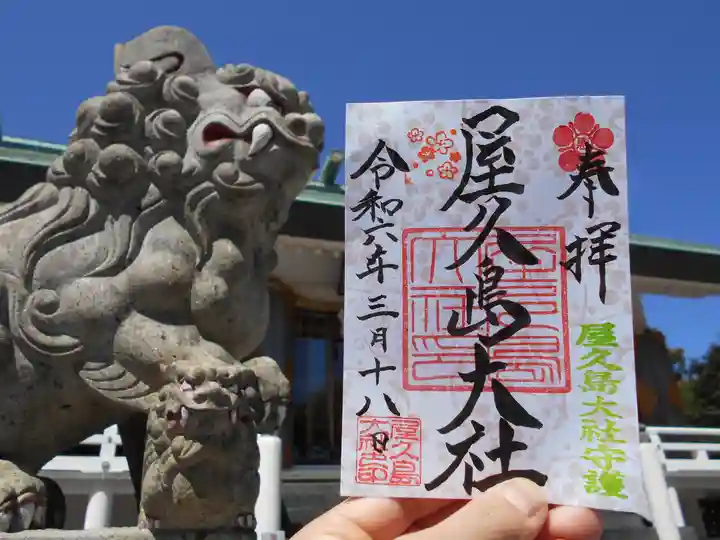 奉拝
屋久島大社守護
屋久島大社
令和六年三月十八日
屋久島
大社